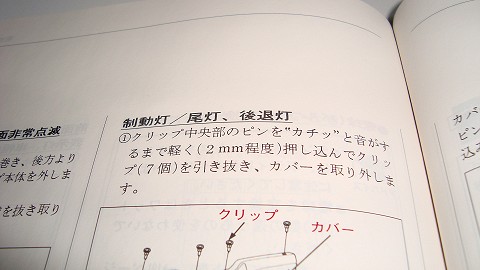 制動灯/尾灯、後退灯
①クリップ中央部のピンを“カチッ”と音がす
るまで軽く(2mm程度)押し込んでクリッ
プ(7個)を引き抜き、カバーを取り外しま
す。
クリップ
カバー
面非常点滅
巻き、後方より
プ本体を外しま
を抜き取り
カバ
ピン
込み